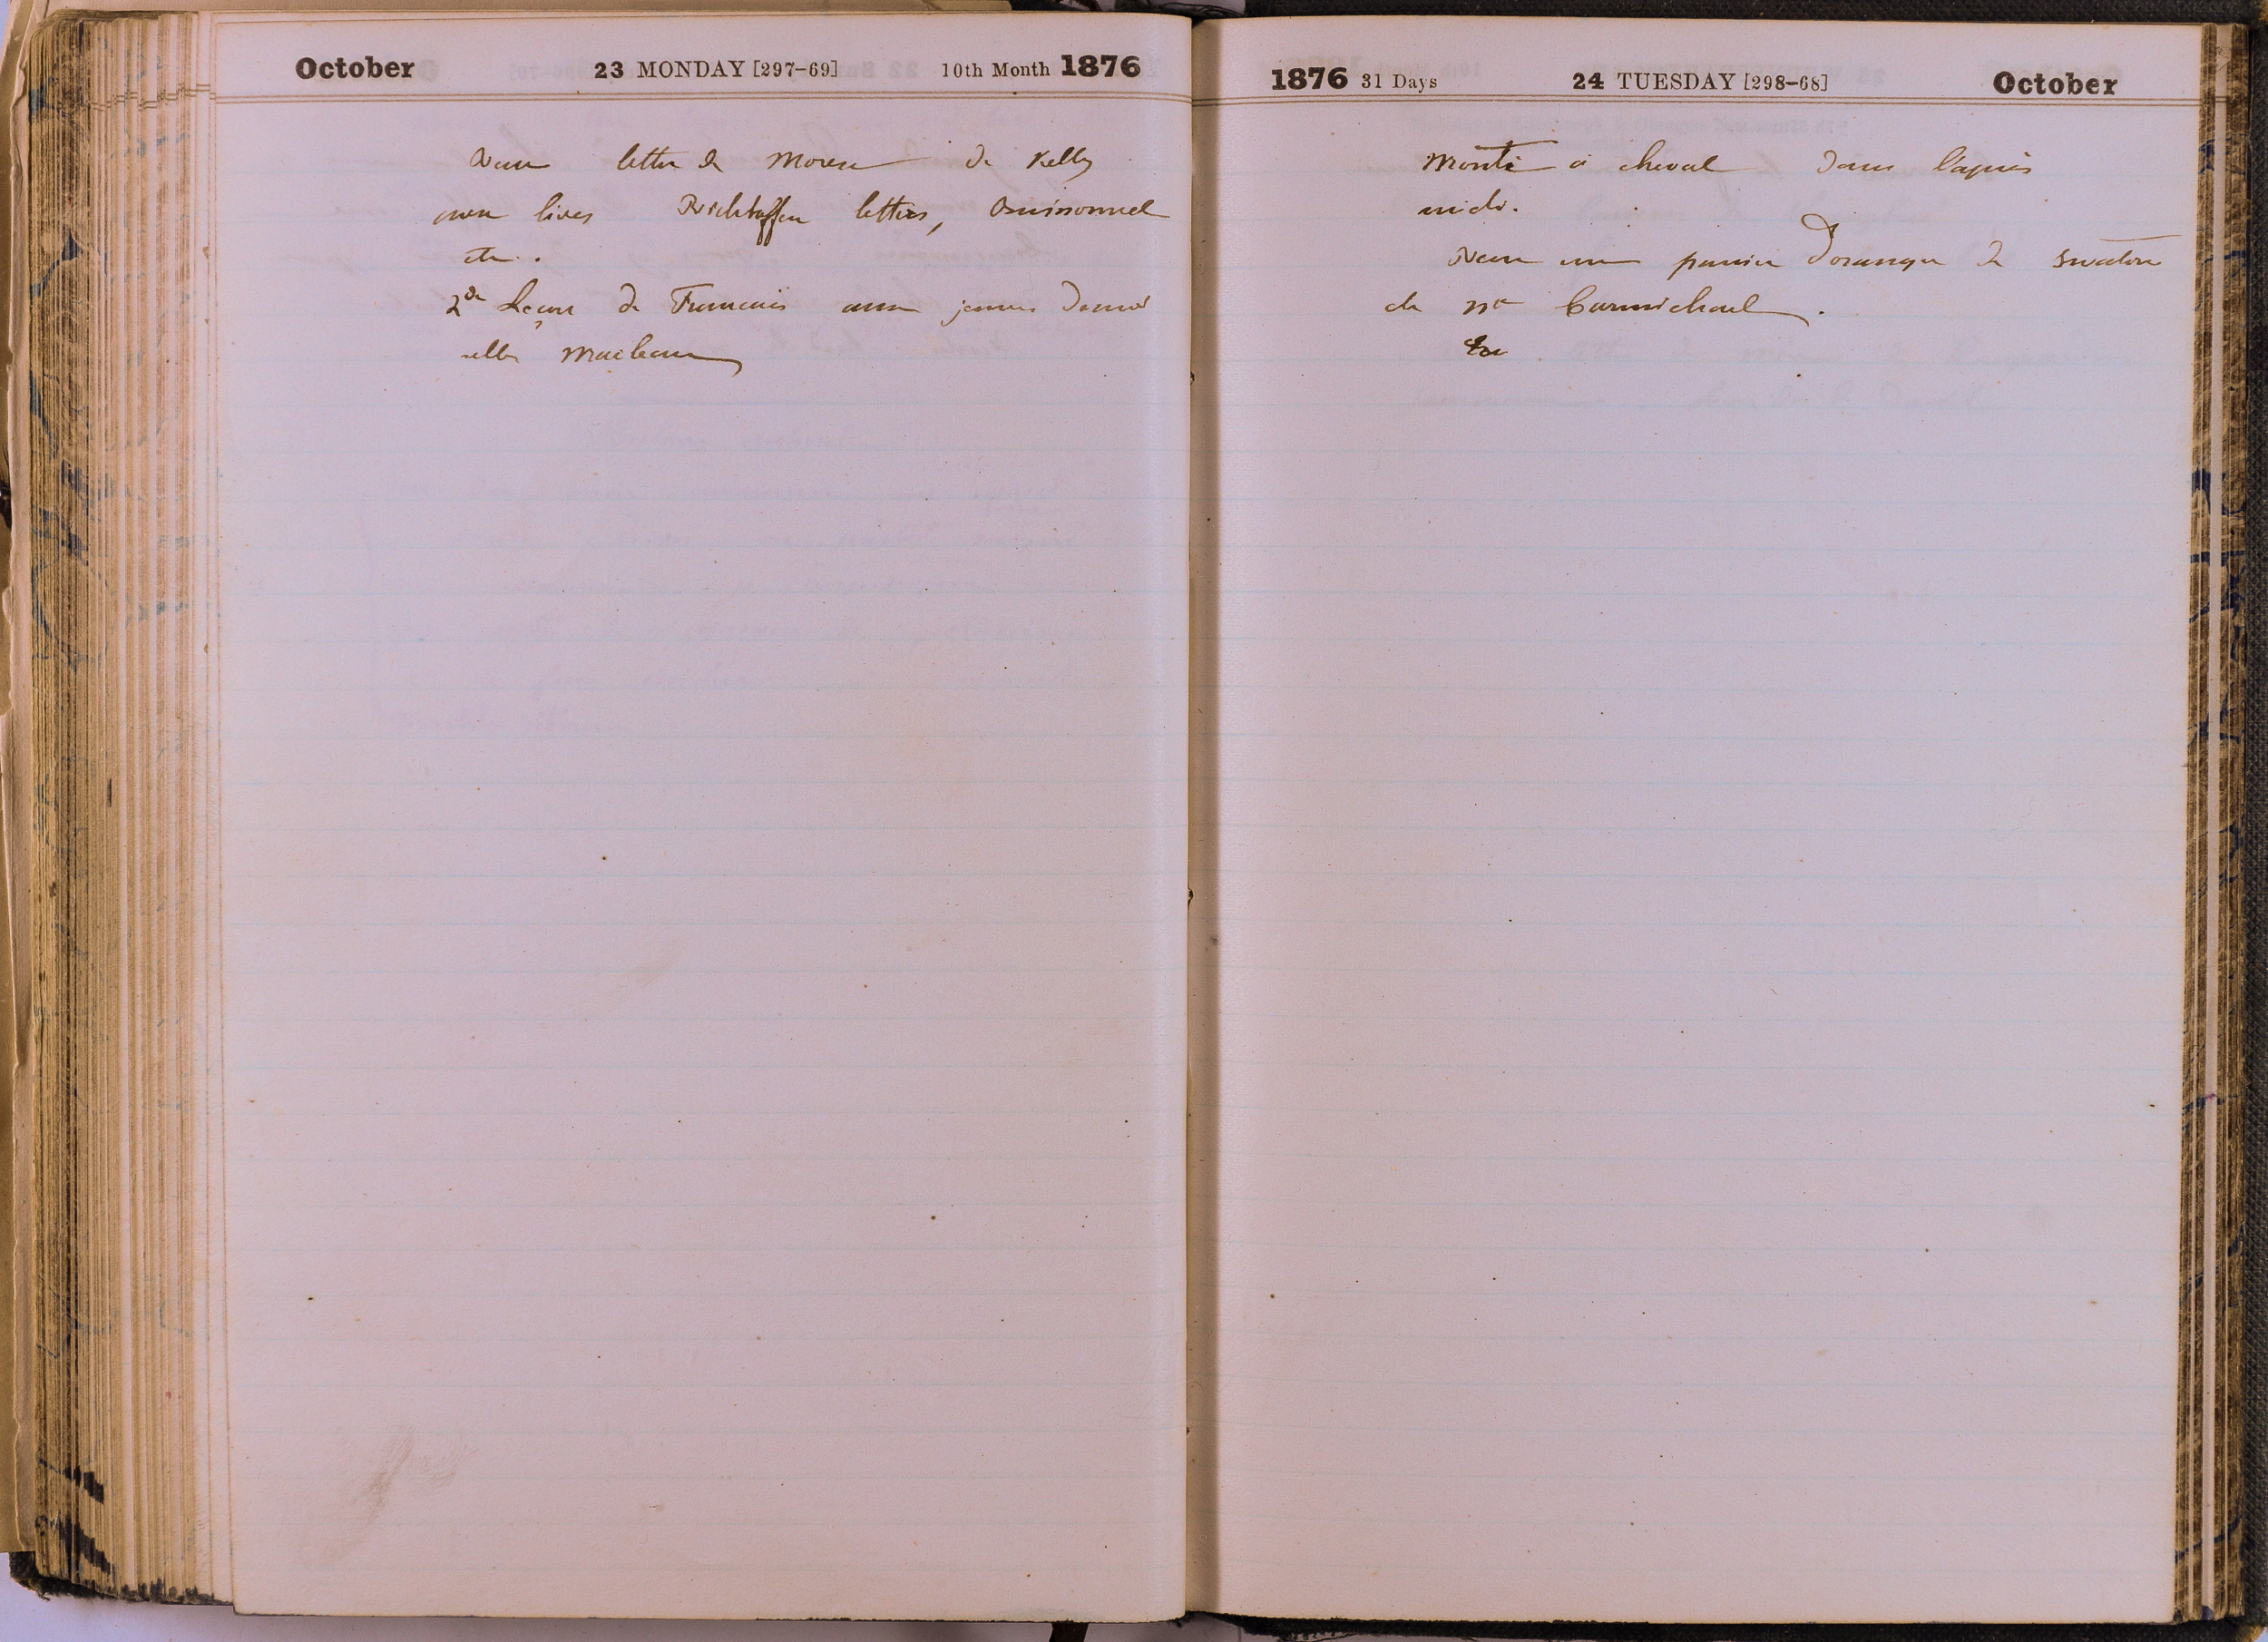 October 23 MONDAY [297-69] 10th Month 1876
Reçu lettre de Morese de Kelly
avec livres Richthoffen letters, Buissonnet
etc.
2de Leçon de Francais aux jeunes demoi
selles Maclean
1876 31 Days 24 TUESDAY [298-68] October
Monté à cheval dans l'après
midi.
Recu un panier d'oranges de Swatow
de Mr Carmichael.